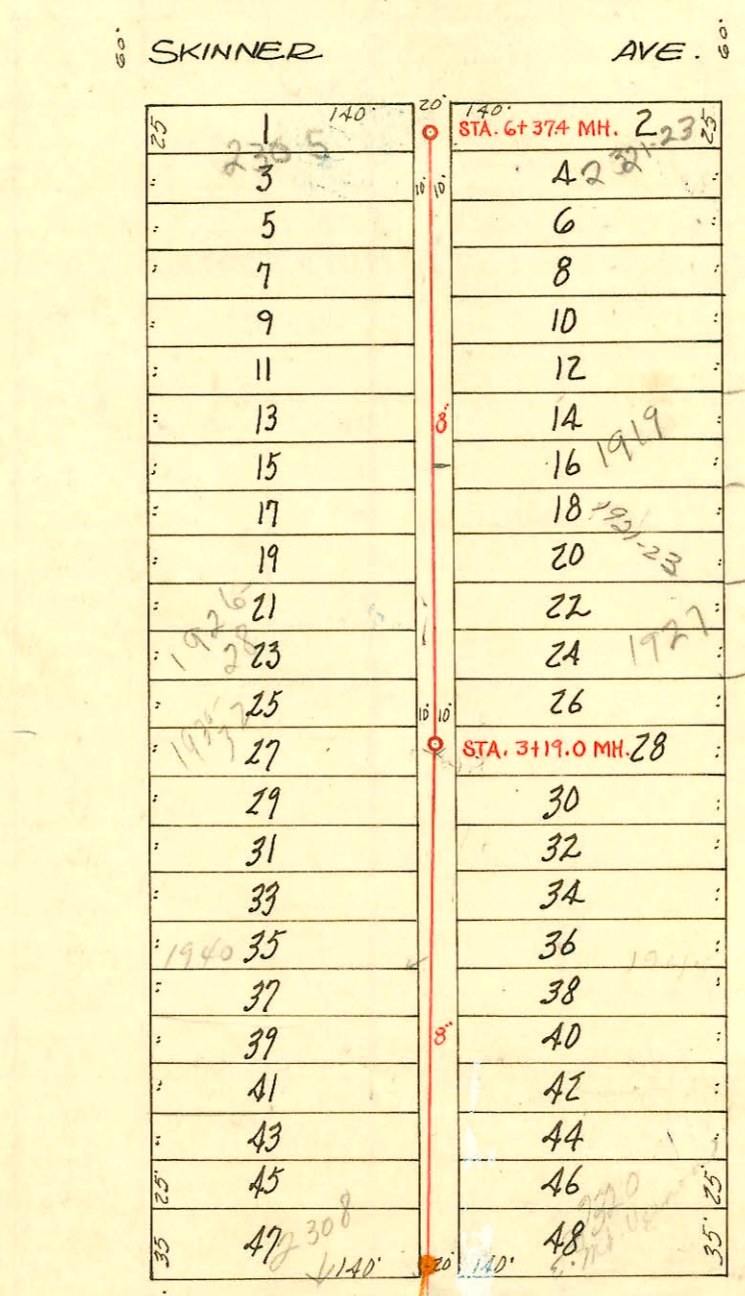 60' SKINNER AVE. 60'
25 1 140' 20' 140' STA. 6+37.4 MH. 2 25
2305 2321-23
3 10' 10' 4
5 6
7 8
9 10
11 12
13 8" 14
15 16 1919
17 18 1921-23
19 20
21 22
1926 28 1927
23 24
25 10' 10' 26
27 STA. 3+19.0 MH. 28
29 30
31 32
33 34
1940 35 36
37 38
39 8" 40
41 42
43 44
25' 45 46 25'
35 47 2308 48 35'
140' 20' 140'